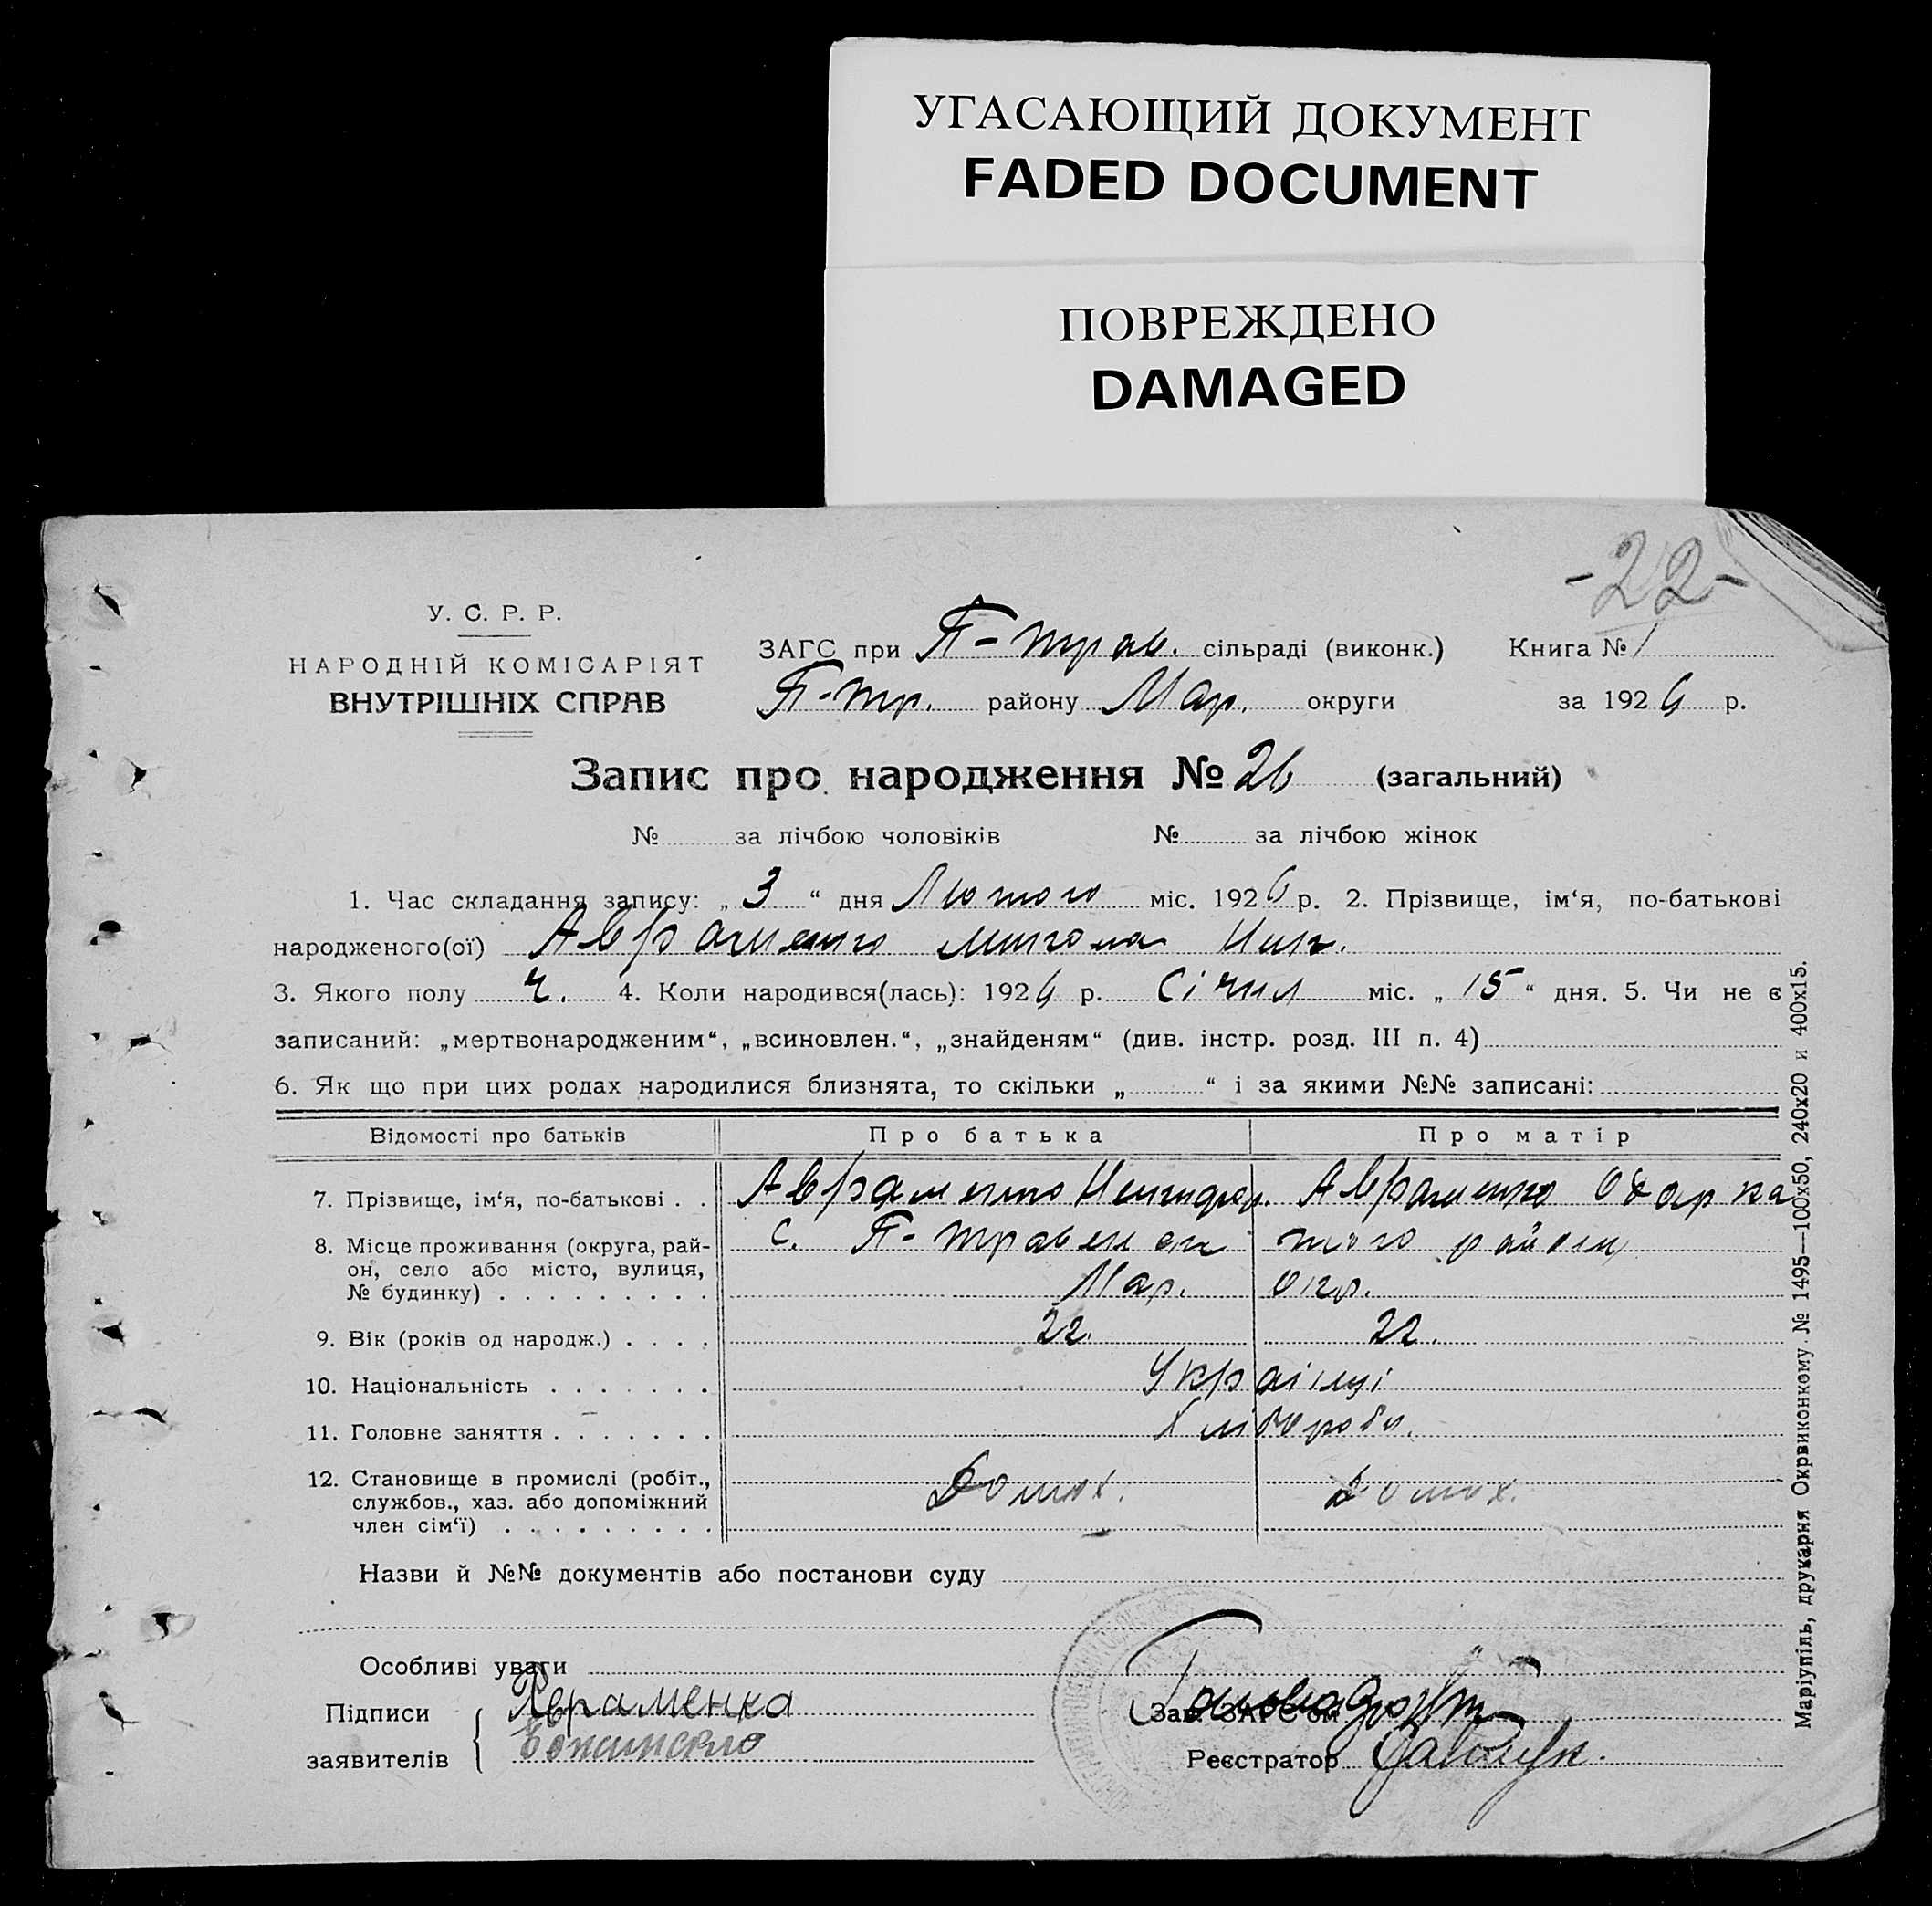 УГАСАЮЩИЙ ДОКУМЕНТ
FADED DOCUMENT
ПОВРЕЖДЕНО
DAMAGED
-22-
У. С. Р. Р.
НАРОДНІЙ КОМІСАРІЯТ
ВНУТРІШНІХ СПРАВ
ЗАГС при П-трав. сільраді (виконк.) Книга № 1
П-тр. району Мар. округи за 1926 р.
Запис про народження № 26 (загальний)
№ за лічбою чоловіків № за лічбою жінок
1. Час складання запису: „ 3 “ дня Лютого міс. 1926 р. 2. Прізвище, ім‘я, по-батькові
народженого(ої) Авраменко Микола Ник.
3. Якого полу ч. 4. Коли народився(лась): 1926 р. Січня міс. „ 15 “ дня. 5. Чи не є
записаний: „мертвонародженим“, „всиновлен.“, „знайденям“ (див. інстр. розд. III п. 4)
6. Як що при цих родах народилися близнята, то скільки „ “ і за якими №№ записані:
Відомості про батьків Про батька Про матір
7. Прізвище, ім‘я, по-батькові . . Авраменко Никифор. Авраменко Одарка
8. Місце проживання (округа, рай- с. П- того району
он, село або місто, вулиця,
№ будинку) . . . . . . . . . Мар. окр.
9. Вік (років од народж.) . . . . 22. 22.
10. Національність . . . . . . . Українці
11. Головне заняття . . . . . . . Хлібороби.
12. Становище в промислі (робіт.,
службов., хаз. або допоміжний
член сім‘ї) . . . . . . . . .
Назви й №№ документів або постанови суду
Особливі уваги
Підписи Авраменка
заявителів
Зав. ЗАГС‘ом
Реєстратор
Маріупіль, друкарня Окрвиконкому. № 1495—100x50, 240x20 и 400x15.